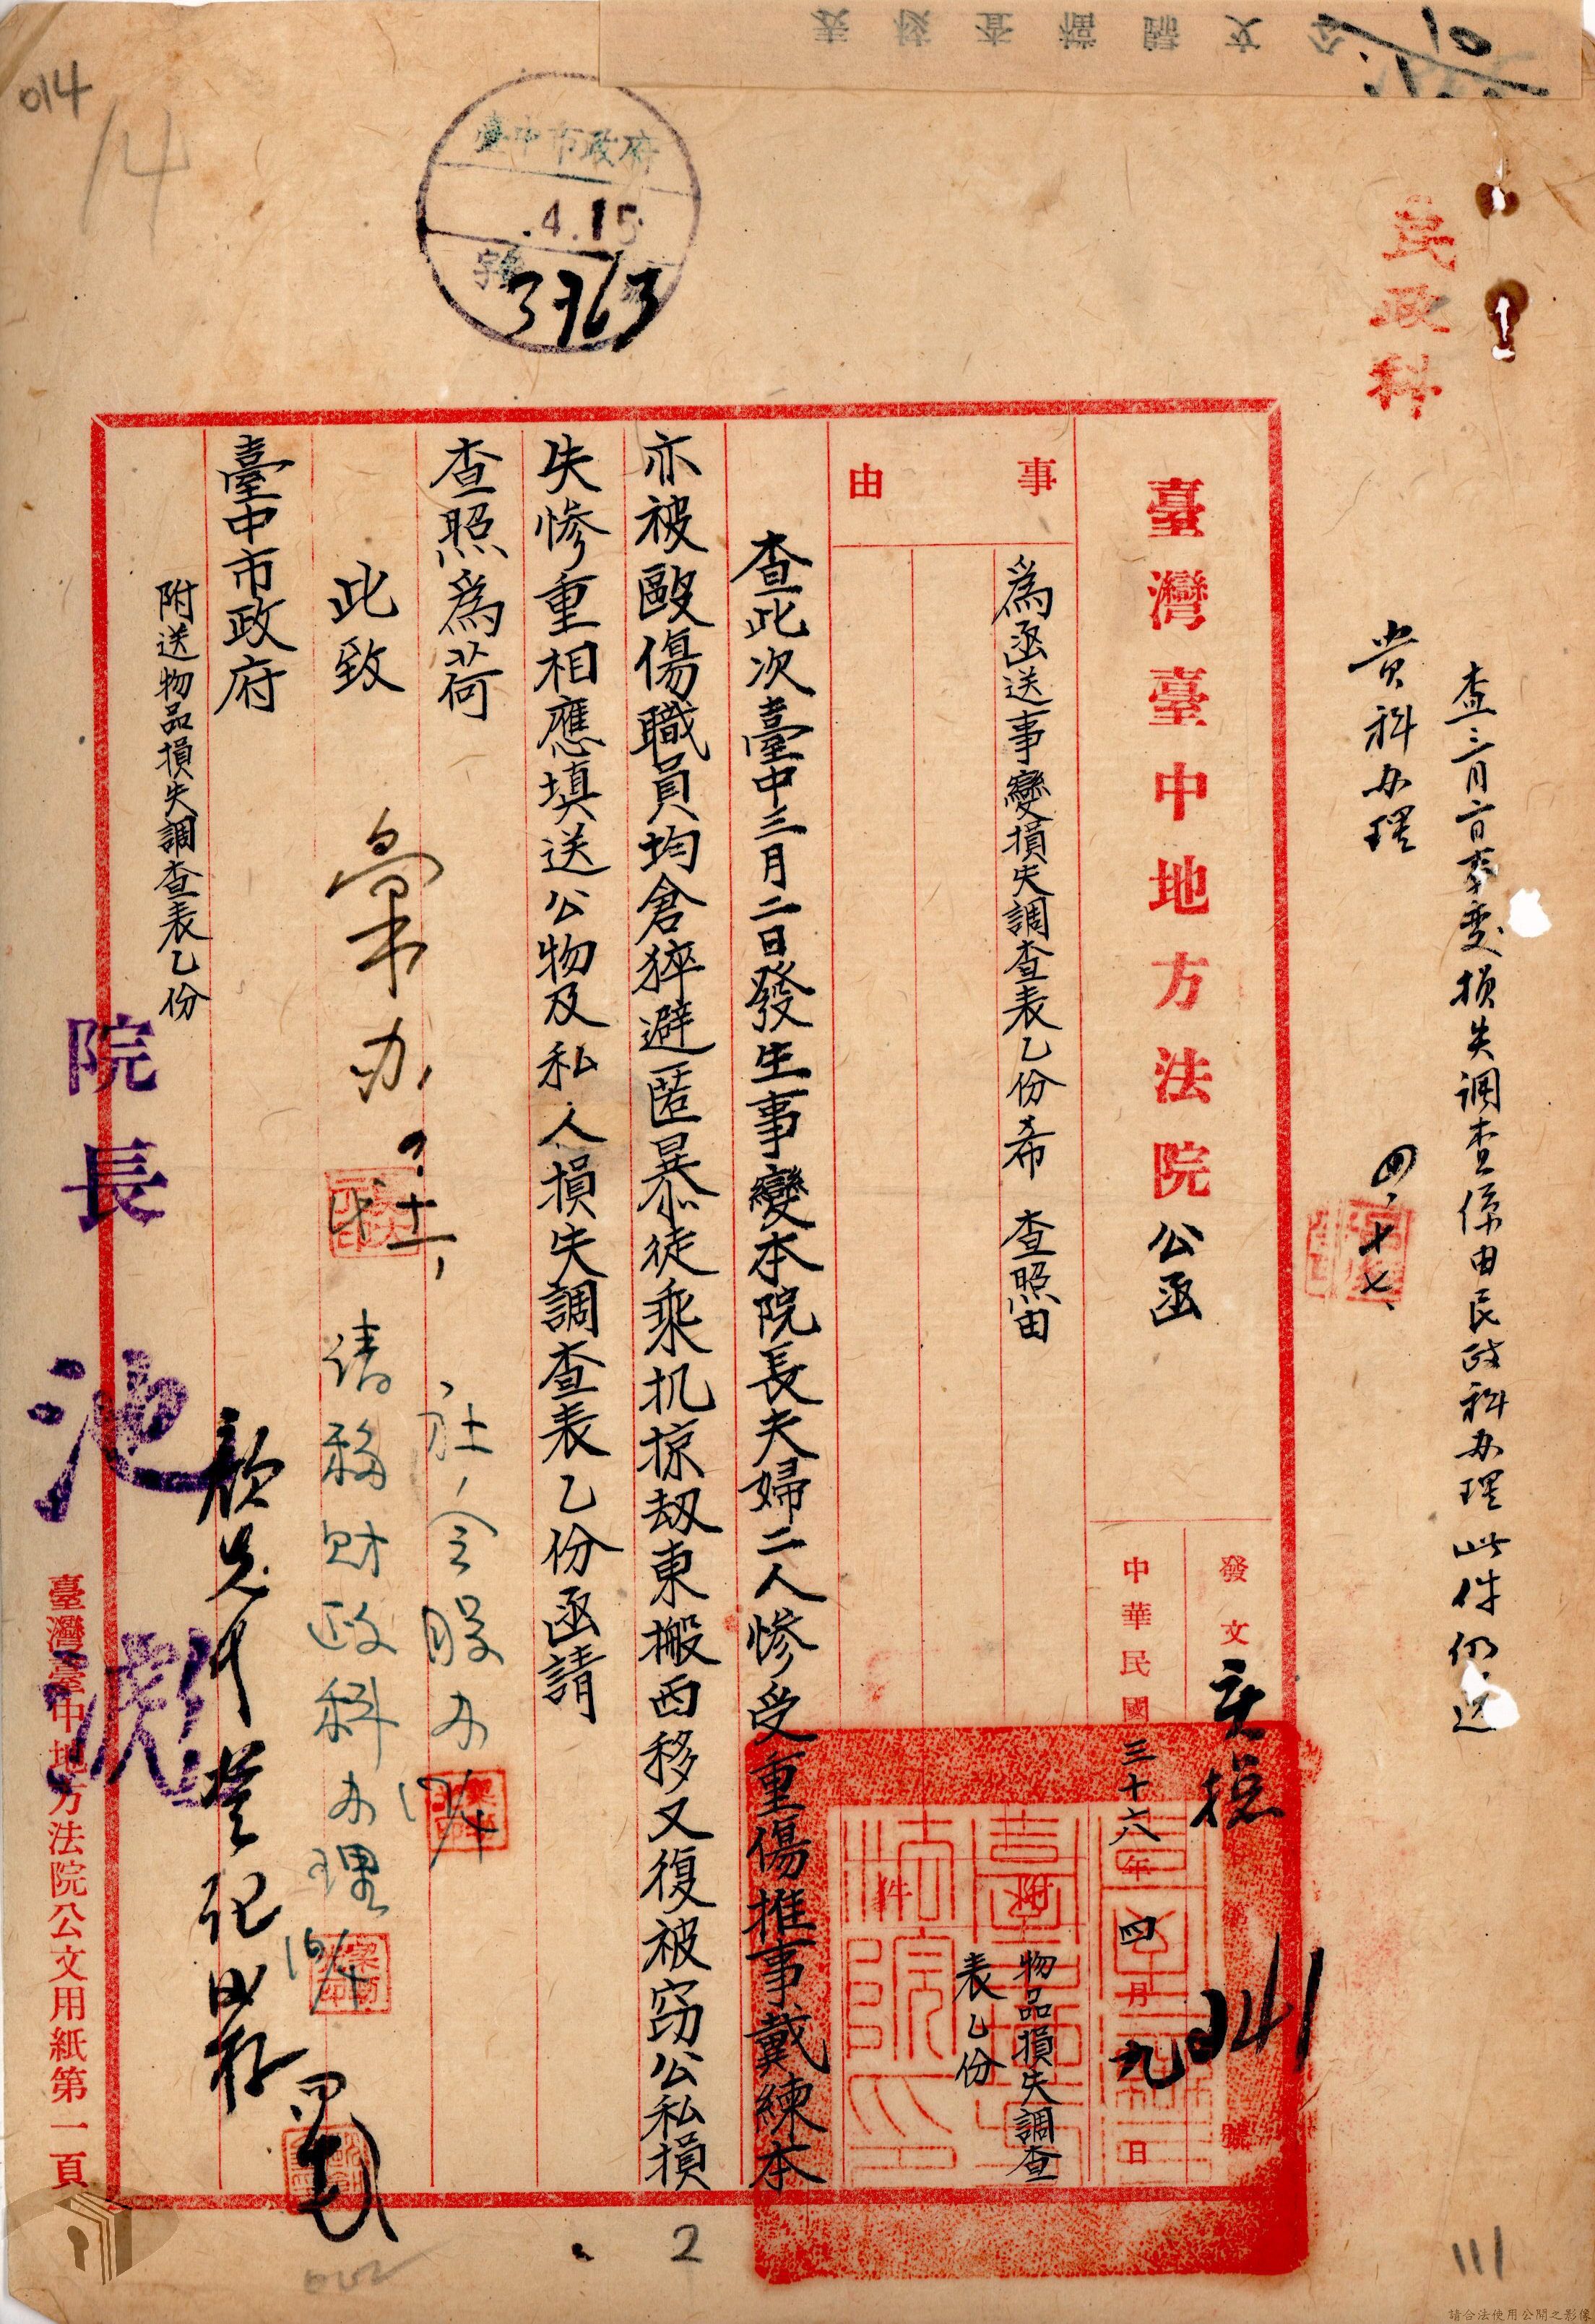 公文歸檔查核表
10
014
14
臺中市政府
.4.15
字
3763
民政科
查三月二日事變損失調查係由民政科办理此件仍送
貴科办理
四、十七、
臺灣臺中地方法院公函
發文
號
0141
中華民國三十六年四月九日
附件
物品損失調查
表乙份
事由
為函送事變損失調查表乙份希 查照由
查此次臺中三月二日發生事變本院長夫婦二人慘受重傷推事戴練本
亦被毆傷職員均倉猝避匿暴徒乘机掠刼東搬西移又復被窃公私損
失慘重相應填送公物及私人損失調查表乙份函請
查照為荷
此致
臺中市政府
附送物品損失調查表乙份
彙办
社会股办
17/4
請移財政科办理
16/4
登記
院長 池 滮
臺灣臺中地方法院公文用紙第一頁
2
111
請合法使用公開之影像